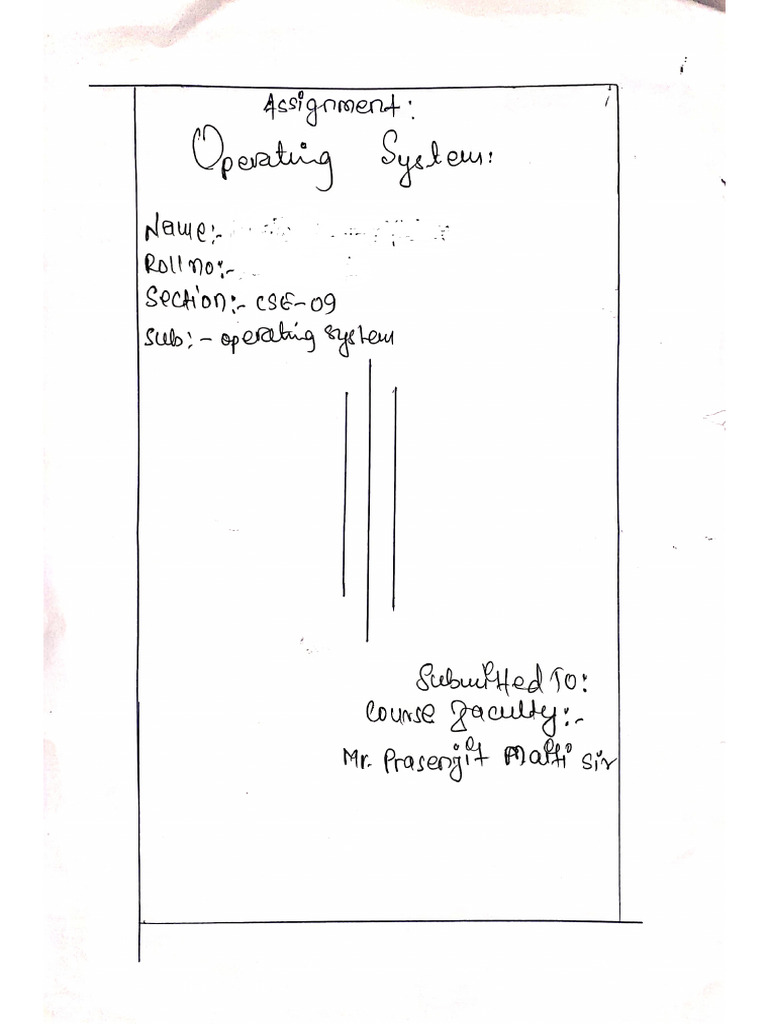 Assignment:
Operating System:
Name:-
Roll no:-
Section:- CSE-09
Sub:- operating system
Submitted To:
Course faculty:-
Mr. Prasenjit Maiti sir